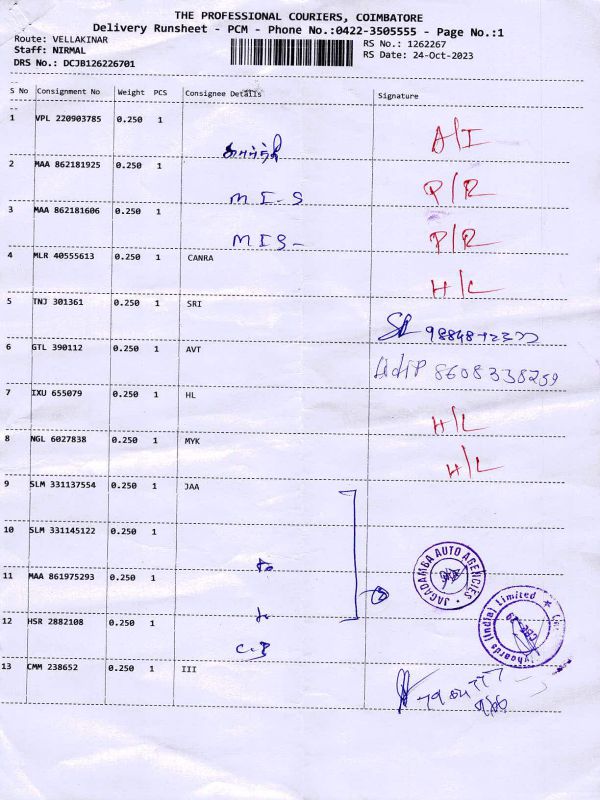 THE PROFESSIONAL COURIERS, COIMBATORE
Delivery Runsheet - PCM - Phone No.:0422-3505555 - Page No.:1
Route: VELLAKINAR
RS No.: 1262267
Staff: NIRMAL
RS Date: 24-Oct-2023
DRS No.: DCJB126226701
S No Consignment No Weight PCS Consignee Details Signature
1 VPL 220903785 0.250 1 A/I
2 MAA 862181925 0.250 1 M I - S P/R
3 MAA 862181606 0.250 1 M I S - P/R
4 MLR 40555613 0.250 1 CANRA H/L
5 TNJ 301361 0.250 1 SRI
6 GTL 390112 0.250 1 AVT 8608338259
7 IXU 655079 0.250 1 HL H/L
8 NGL 6027838 0.250 1 MYK H/L
9 SLM 331137554 0.250 1 JAA
10 SLM 331145122 0.250 1
11 MAA 861975293 0.250 1
JAGADAMBA AUTO AGENCIES
12 HSR 2882108 0.250 1
(India) Limited
CBE
13 CMM 238652 0.250 1 III